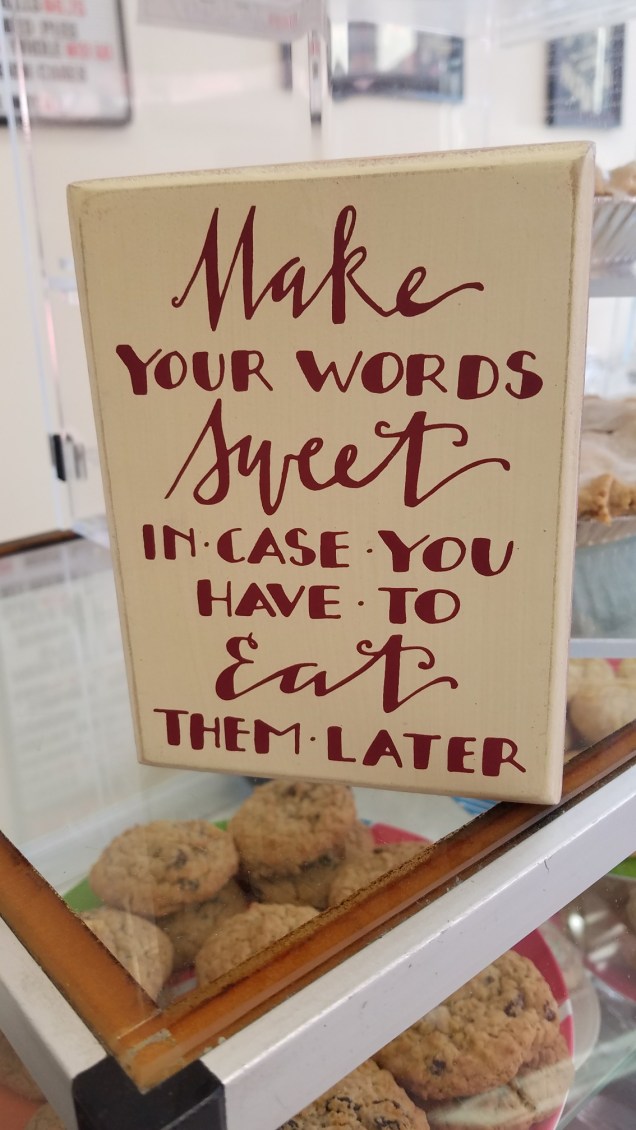 Make
YOUR WORDS
Sweet
IN·CASE·YOU
HAVE·TO
Eat
THEM·LATER